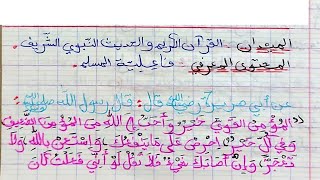 الميدان: القرآن الكريم والحديث النبوي الشريف.
المحتوى المعرفي: فاعلية المسلم
عن أبي هريرة رضي الله عنه قال: قال رسول الله صلى الله عليه وسلم:
((المؤمن القوي خير وأحب إلى الله من المؤمن الضعيف
وفي كل خير احرص على ما ينفعك واستعن بالله ولا
تعجز وإن أصابك شيء فلا تقل لو أني فعلت كان